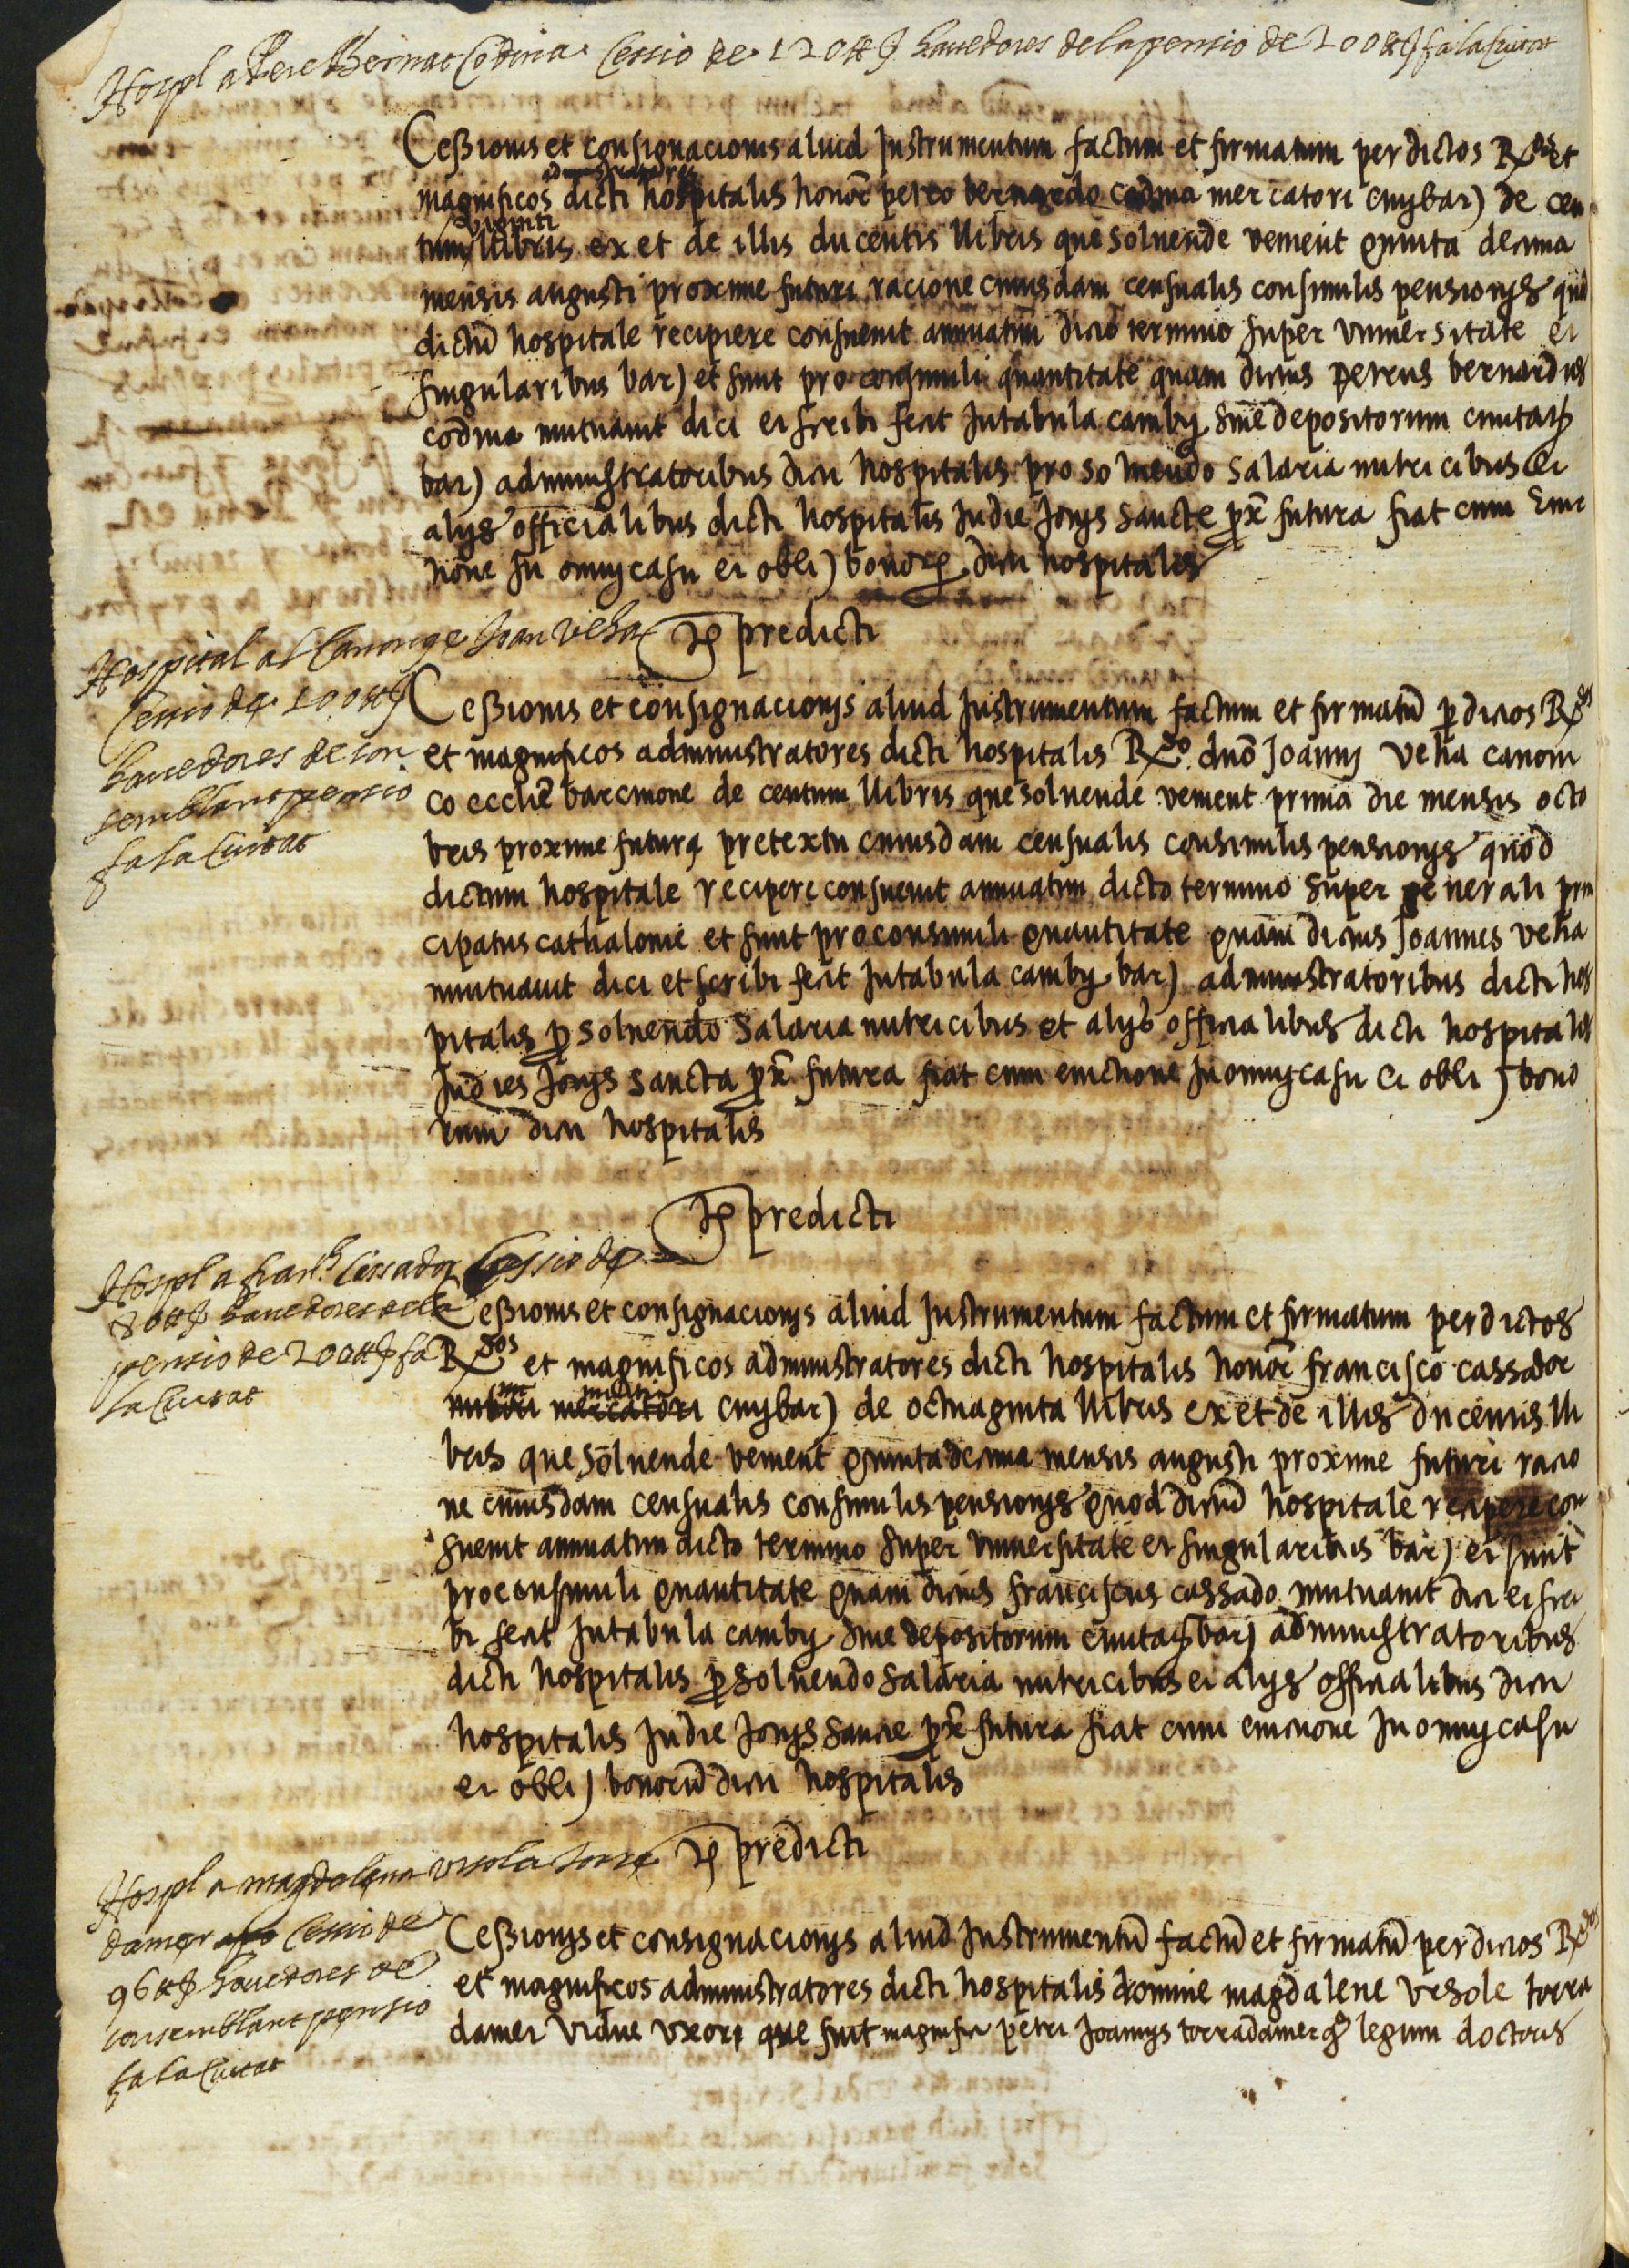 Hospl a Pere Bernat Codina Cessio de 120 ll hauedores de la pensio de 200 ll fa la Ciutat
Cessionis et consignacionis aliud Instrumentum factum et firmatum per dictos Rdos et
administratores
magnificos dicti hospitalis honor petro bernardo codina mercatori ciuybar) de cen
viginti
tum llibris ex et de illis ducentis llibris que soluende venient quinta decima
mensis augusti proxime futuri racione cuiusdam censualis consimilis pensionis quod
dictu hospitale recipiere consueuit annuatim dicto termino super vniuersitate et
singularibus bar) et sunt pro consimili quantitate quam dictus petrus bernardus
codina mutuauit dici et scribi fecit In tabula camby siue depositorum ciuitatis
bar) administratoribus dicti hospitalis pro soluendo salaria nutricibus et
alys officialibus dicti hospitalis In die Jouis sancte prox futura fiat cum euic
tione In omny casu et obli) bonorum dicti hospitalis
Hospital al Canonge Joan Vesla
Ijdem predicti
Cessio de 100 ll
haueDores de con
semblant pensio
fa la Ciutat
Cessionis et consignacionis aliud Instrumentum factum et firmatu per dictos Rdos
et magnificos administratores dicti hospitalis Rdo dno Joanni vehia canoni
co ecclie barcinone de centum llibris que soluende venient prima die mensis octo
bris proxime futura pretextu cuiusdam censualis consimilis pensionis quod
dictum hospitale recipere consueuit annuatim dicto termino super generali prin
cipatus cathalonie et sunt pro consimili quantitate quam dictus Joannes vehia
muutuauit dici et scribi fecit In tabula camby bar) administratoribus dicti hos
pitalis per soluendo salaria nutricibus et alys officialibus dicti hospitalis
In dies Jouis sancta prox futura fiat cum euictione In omny casu et obli) bono
rum dicti hospitalis
Ijdem predicti
Hospl a Franch Cassador Cessio de
80 ll haueDores de la
pensio de 200 ll fa
la Ciutat
Cessionis et consignacionis aliud Instrumentum factum et firmatum per dictos
Rdos et magnificos administratores dicti hospitalis honor francisco cassador
militi
mercatori ciuybar) de octuaginta llibris ex et de illis ducentis lli
bris que soluende venient quinta decima mensis augusti proxime futuri racio
ne cuiusdam censualis consimilis pensionis quod dictu hospitale recipere con
sueuit annuatim dicto termino super vniuersitate et singularibus bar) et sunt
pro consimili quantitate quam dictus franciscus cassado mutuauit dici et scri
bi fecit In tabula camby siue depositorum ciuitatis bar) administratoribus
dicti hospitalis per soluendo salaria nutricibus et alys officialibus dicti
hospitalis In die Jouis sancte prox futura fiat cum euictione In omny casu
et obli) bonoru dicti hospitalis
Ijdem predicti
Hospl a magdalena vrsola torra
damer Cessio de
96 ll haueDores de
consemblant pensio
fa la Ciutat
Cessionis et consignacionis aliud Instrumentu factu et firmatu per dictos Rdos
et magnificos administratores dicti hospitalis domine magdalene vrsole torra
damer vidue vxori que fuit magnifici petri Joannis torradamer qo legum doctoris